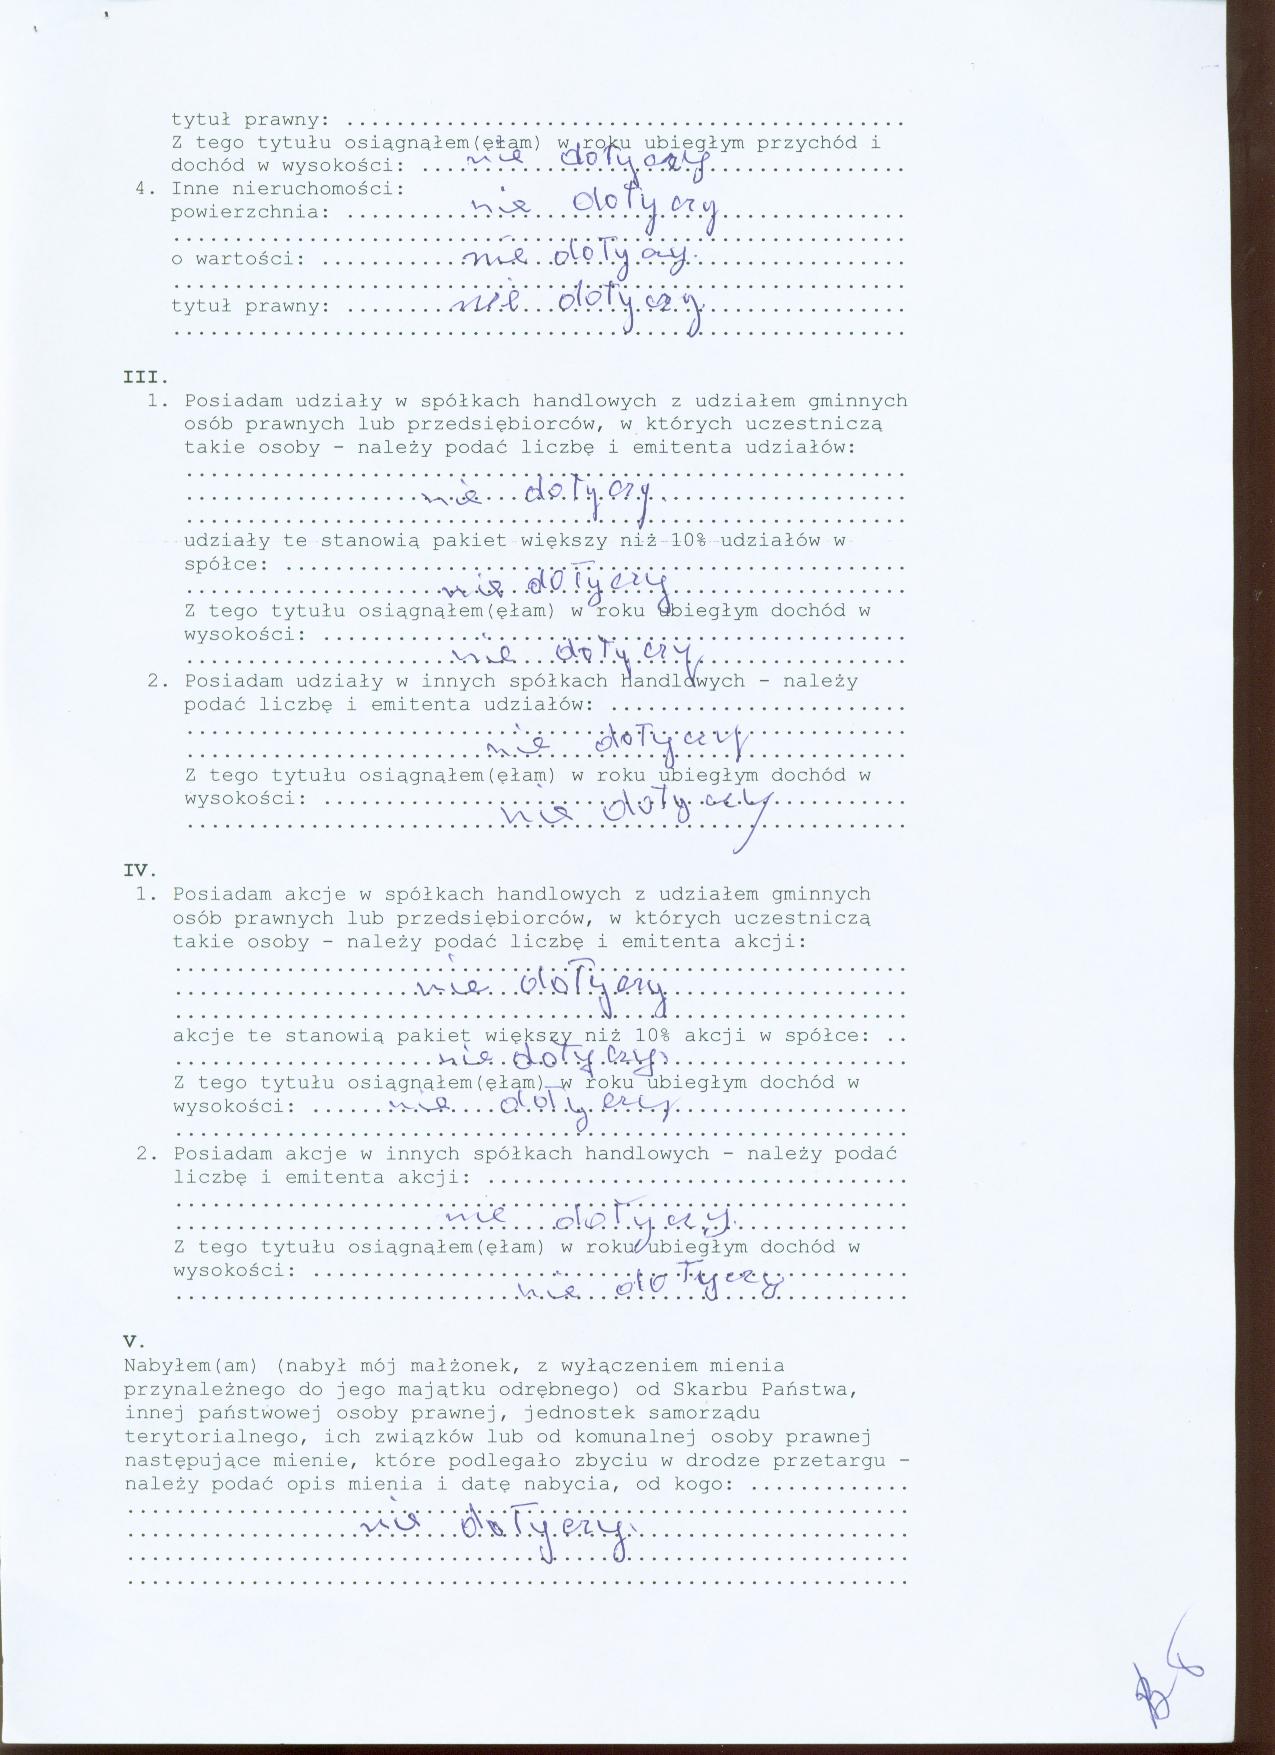 tytuł prawny: ..............................................
Z tego tytułu osiągnąłem(ęłam) w roku ubiegłym przychód i
dochód w wysokości: .... nie dotyczy ................
4. Inne nieruchomości:
powierzchnia: ........... nie dotyczy ...............
............................................................
o wartości: ............ nie dotyczy .................
............................................................
tytuł prawny: ......... nie dotyczy ................
............................................................
III.
1. Posiadam udziały w spółkach handlowych z udziałem gminnych
osób prawnych lub przedsiębiorców, w których uczestniczą
takie osoby - należy podać liczbę i emitenta udziałów:
...........................................................
................... nie dotyczy ....................
...........................................................
udziały te stanowią pakiet większy niż 10% udziałów w
spółce: ...................................................
..................... nie dotyczy ...................
Z tego tytułu osiągnąłem(ęłam) w roku ubiegłym dochód w
wysokości: ................................................
...................... nie dotyczy .................
2. Posiadam udziały w innych spółkach handlowych - należy
podać liczbę i emitenta udziałów: ........................
...........................................................
........................ nie dotyczy .............
Z tego tytułu osiągnąłem(ęłam) w roku ubiegłym dochód w
wysokości: ............... nie dotyczy ...........
...........................................................
IV.
1. Posiadam akcje w spółkach handlowych z udziałem gminnych
osób prawnych lub przedsiębiorców, w których uczestniczą
takie osoby - należy podać liczbę i emitenta akcji:
............................................................
.................... nie dotyczy ....................
............................................................
akcje te stanowią pakiet większy niż 10% akcji w spółce: ..
..................... nie dotyczy ...................
Z tego tytułu osiągnąłem(ęłam) w roku ubiegłym dochód w
wysokości: ...... nie dotyczy ...................
............................................................
2. Posiadam akcje w innych spółkach handlowych - należy podać
liczbę i emitenta akcji: ..................................
............................................................
...................... nie dotyczy ..............
Z tego tytułu osiągnąłem(ęłam) w roku ubiegłym dochód w
wysokości: ................................................
............................ nie dotyczy ..........
V.
Nabyłem(am) (nabył mój małżonek, z wyłączeniem mienia
przynależnego do jego majątku odrębnego) od Skarbu Państwa,
innej państwowej osoby prawnej, jednostek samorządu
terytorialnego, ich związków lub od komunalnej osoby prawnej
następujące mienie, które podlegało zbyciu w drodze przetargu -
należy podać opis mienia i datę nabycia, od kogo: .............
................................................................
................... nie dotyczy. ......................
................................................................
................................................................